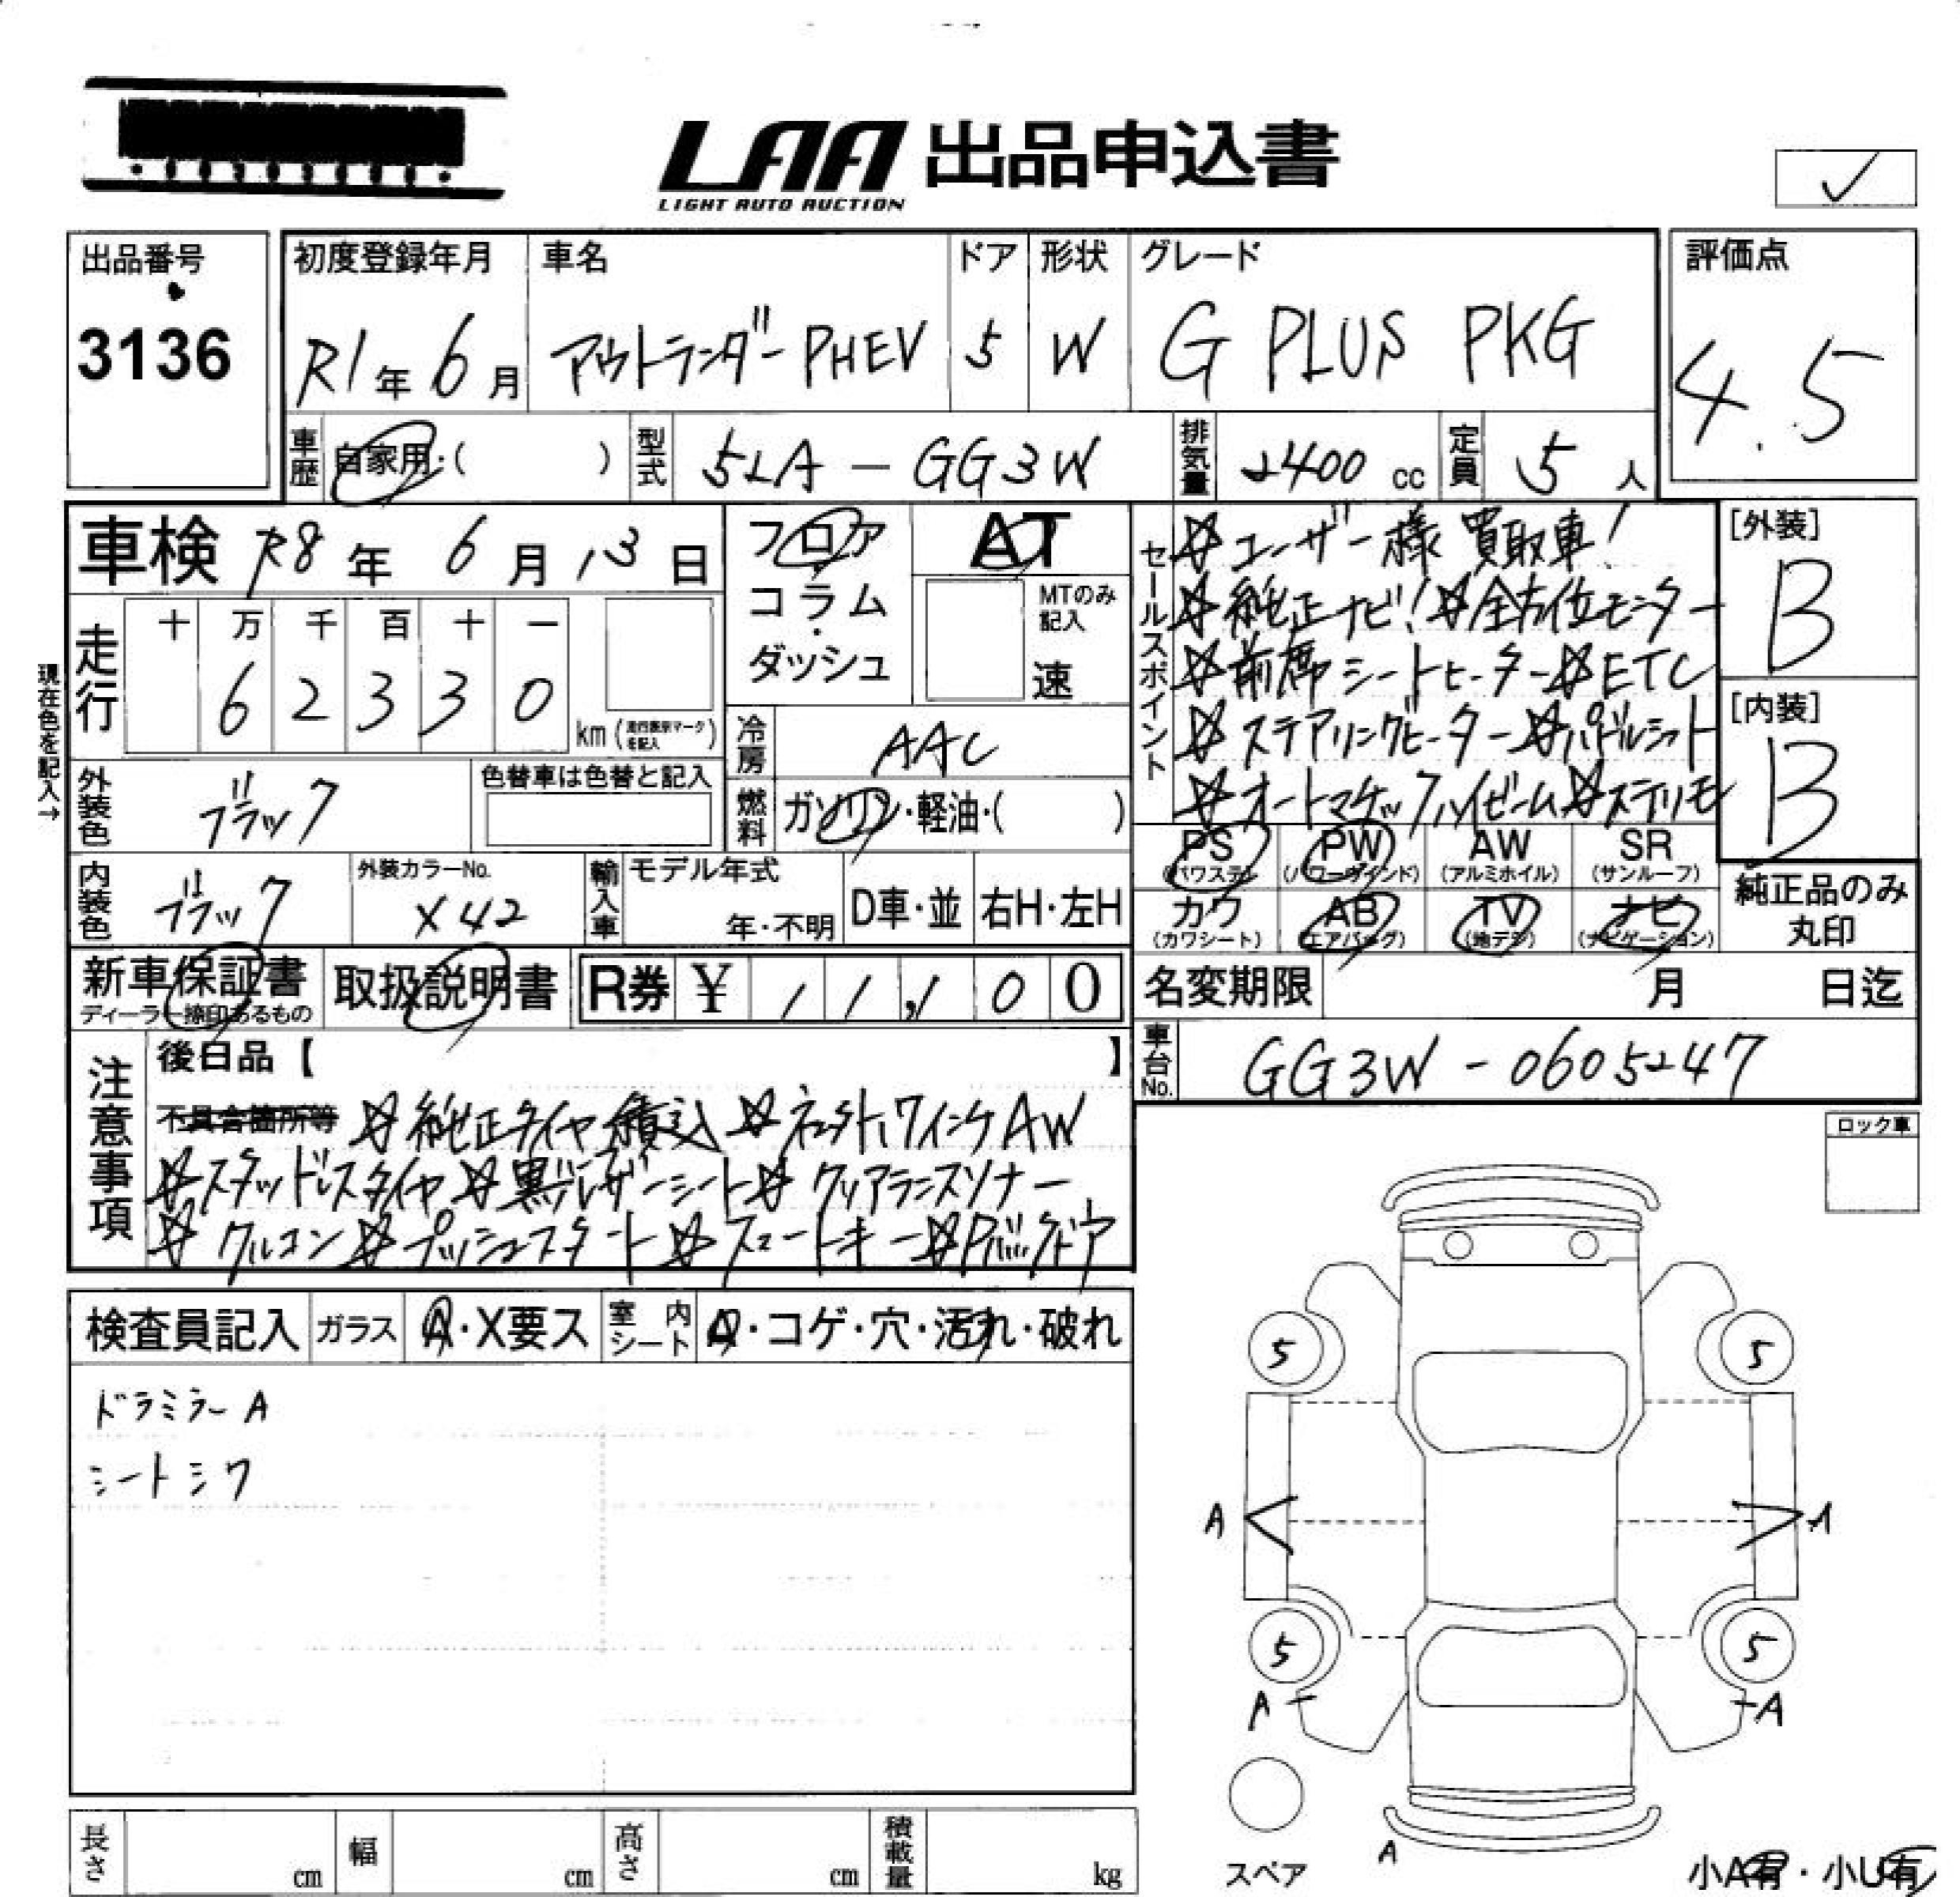 LAA 出品申込書
LIGHT AUTO AUCTION
✓
出品番号
3136
初度登録年月 車名 ドア 形状 グレード
R1年 6月 アウトランダーPHEV 5 W G PLUS PKG
評価点
4.5
車歴 自家用・( ) 型式 5LA-GG3W 排気量 2400 cc 定員 5人
車検 R8年 6月13日
フロア
コラム
・
ダッシュ
AT
MTのみ記入
速
現在色を記入→
走行 十 万 千 百 十 一
6 2 3 3 0 km (走行表示マークを記入)
冷房 AAC
外装色 ブラック 色替車は色替と記入
燃料 ガソリン・軽油・( )
内装色 ブラック 外装カラーNo. X42
輸入車 モデル年式 年・不明 D車・並 右H・左H
新車保証書 取扱説明書 R券 ¥ 11,100
ディーラー捺印あるもの
セールスポイント
☆ユーザー様買取車!
☆純正ナビ!☆全方位モニター
☆前席シートヒーター☆ETC
☆ステアリングヒーター☆パドルシフト
☆オートマチックハイビーム☆ステリモ
[外装]
B
[内装]
B
PS PW AW SR
(パワステ) (パワーウインド) (アルミホイル) (サンルーフ)
カワ AB TV ナビ
(カワシート) (エアバッグ) (地デジ) (ナビゲーション)
純正品のみ
丸印
名変期限 月 日迄
車台No. GG3W-0605247
注意事項
後日品【 】
不具合箇所等 ☆純正タイヤ積込☆ネットトワインケAW
☆スタッドレスタイヤ☆黒ハーフレザーシート☆クリアランスソナー
☆クルコン☆プッシュスタート☆スマートキー☆Pバックドア
ロック車
検査員記入 ガラス A・X要ス 室内シート A・コゲ・穴・汚れ・破れ
ドラミラーA
シートシワ
5 5
A A
5 5
A A
A
スペア
小A有・小U有
長さ cm 幅 cm 高さ cm 積載量 kg